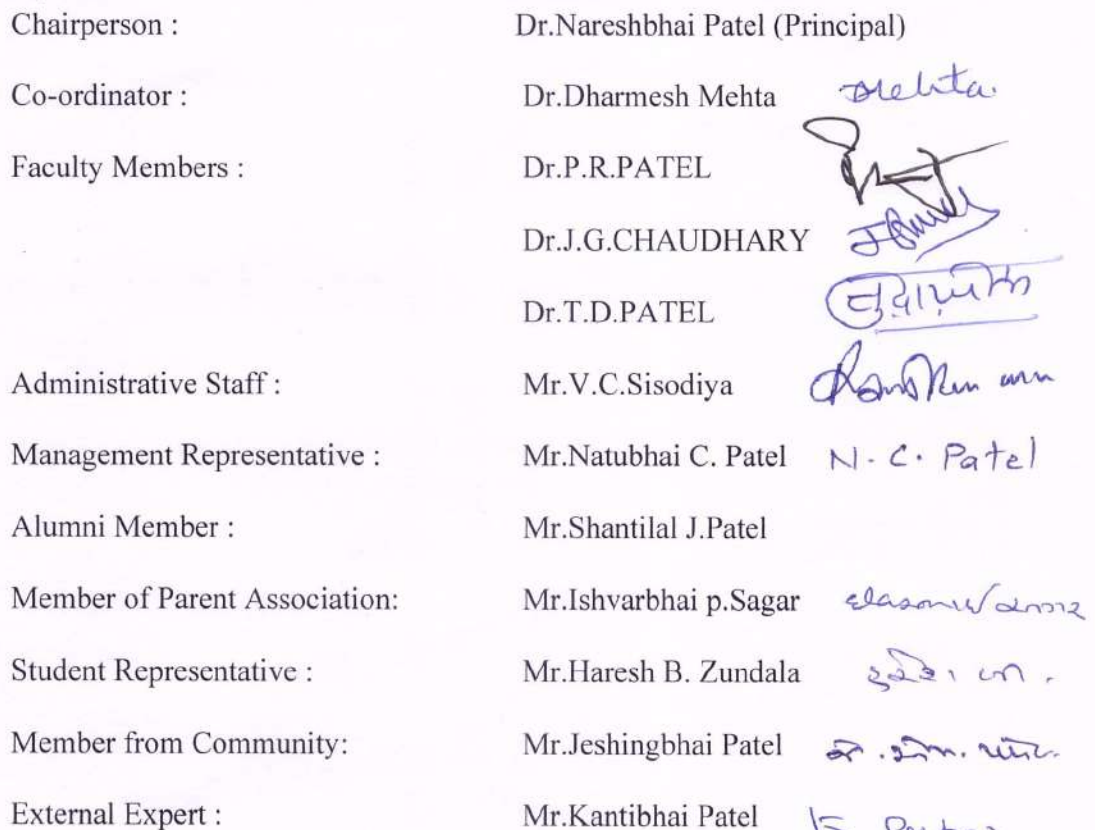 Chairperson : Dr.Nareshbhai Patel (Principal)
Co-ordinator : Dr.Dharmesh Mehta Mehta.
Faculty Members : Dr.P.R.PATEL
Dr.J.G.CHAUDHARY
Dr.T.D.PATEL
Administrative Staff : Mr.V.C.Sisodiya
Management Representative : Mr.Natubhai C. Patel N. C. Patel
Alumni Member : Mr.Shantilal J.Patel
Member of Parent Association: Mr.Ishvarbhai p.Sagar
Student Representative : Mr.Haresh B. Zundala
Member from Community: Mr.Jeshingbhai Patel
External Expert : Mr.Kantibhai Patel